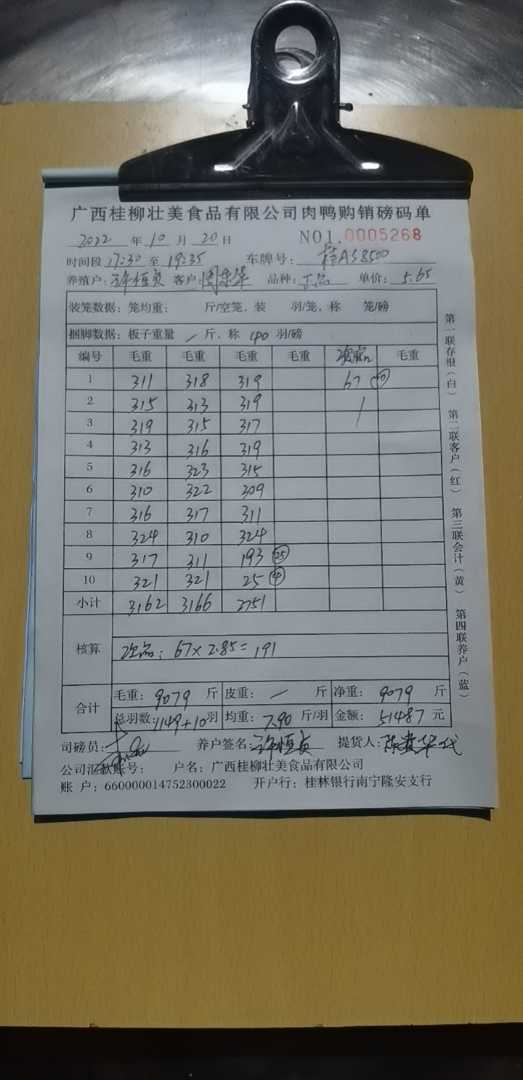 广西桂柳壮美食品有限公司肉鸭购销磅码单
2022 年 10 月 20 日 NO1.0005268
时间段 17:30 至 19:35 车牌号: A38500
养殖户: 许恒贞 客户: 品种: 正品 单价: 5.65
装笼数据: 笼均重: 斤/空笼, 装 羽/笼, 称 笼/磅
捆脚数据: 板子重量 / 斤, 称 40 羽/磅
编号 毛重 毛重 毛重 毛重 次品 毛重
1 311 318 319 67 ⑩
2 315 313 319 /
3 319 315 317
4 313 316 319
5 316 323 315
6 310 322 309
7 316 317 311
8 324 310 324
9 317 311 193 25
10 321 321 25 ④
小计 3162 3166 2751
核算
次品: 67×2.85=191
合计 毛重: 9079 斤 皮重: / 斤 净重: 9079 斤
总羽数: 1149+10 羽 均重: 7.90 斤/羽 金额: 51487 元
司磅员: 养户签名: 许恒贞 提货人: 代
公司汇款账号: 户名: 广西桂柳壮美食品有限公司
账 户: 660000014752300022 开户行: 桂林银行南宁隆安支行
第一联存根(白) 第二联客户(红) 第三联会计(黄) 第四联养户(蓝)